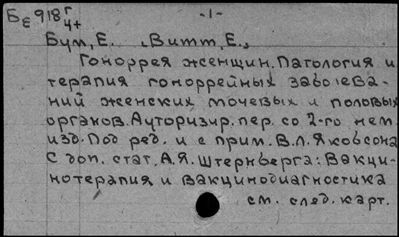 Бε 918 г/4+
-1-
Бум, Е. , Витт, Е.,
Гоноррея женщин. Патология и
терапия гоноррейных заболева-
ний женских мочевых и половых
органов. Ауторизир. пер. со 2-го нем.
изд. Под ред. и с прим. В.Л. Якобсона
С доп. стат. А.Я. Штернберга: Вакци-
нотерапия и вакцинодиагностика
см. след. карт.